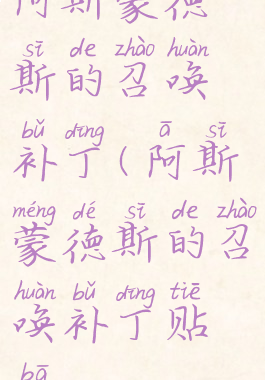 阿斯蒙德
sī de zhào huàn
斯的召唤
bǔ dīng ā sī
补丁(阿斯
méng dé sī de zhào
蒙德斯的召
huàn bǔ dīng tiē
唤补丁贴
bā